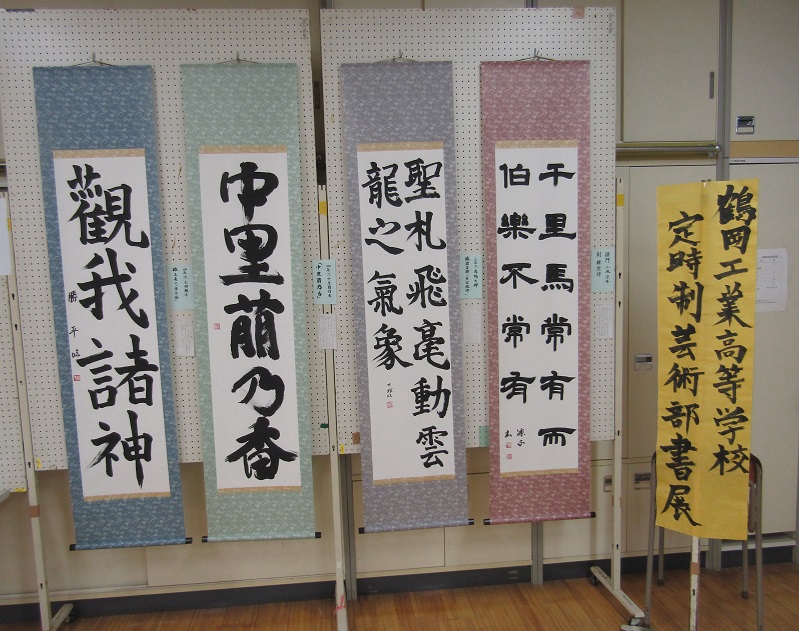 鶴岡工業高等学校
定時制芸術部書展
千里馬常有而
伯樂不常有
聖札飛毫動雲
龍之氣象
中里萠乃香
觀我諸神